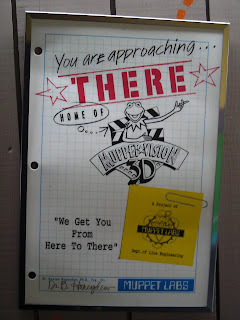 You are approaching...
THERE
HOME OF
MUPPET★VISION
3D
"We Get You
From
Here To There"
A Project of
MUPPET LABS
Dept. of Line Engineering
Dr. B. Honeydew
MUPPET LABS